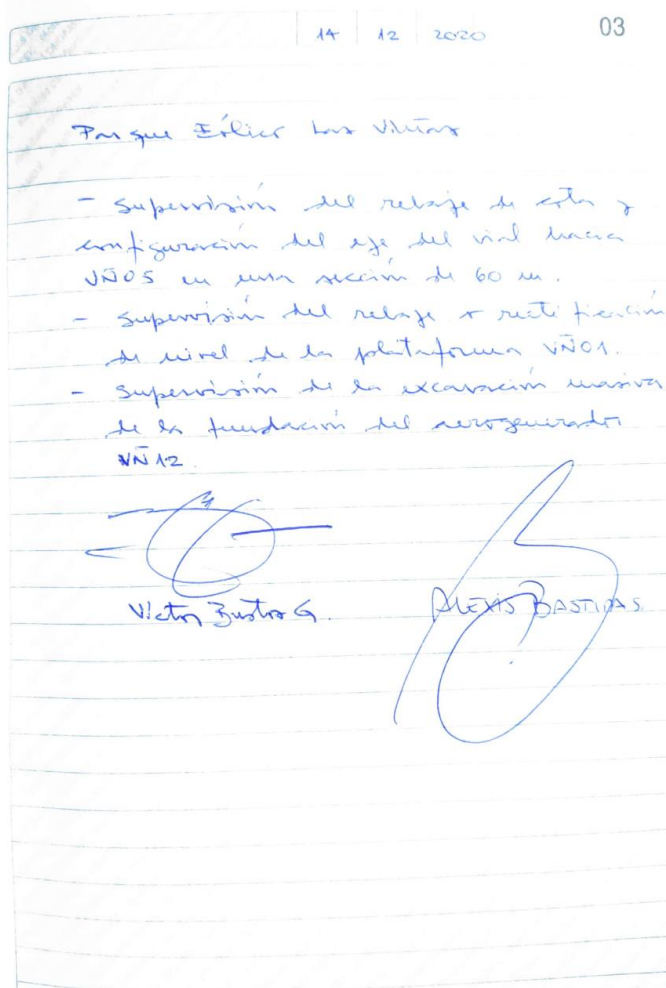 14 12 2020 03
Parque Eólico Las Viñas
- Supervisión del rebaje de cota y
configuración del eje del vial hacia
VÑ05 en una sección de 60 m.
- Supervisión del rebaje o rectificación
de nivel de la plataforma VÑ01.
- Supervisión de la excavación masiva
de la fundación del aerogenerador
VÑ12.
Victor Bustos G.
ALEXIS BASTIDAS